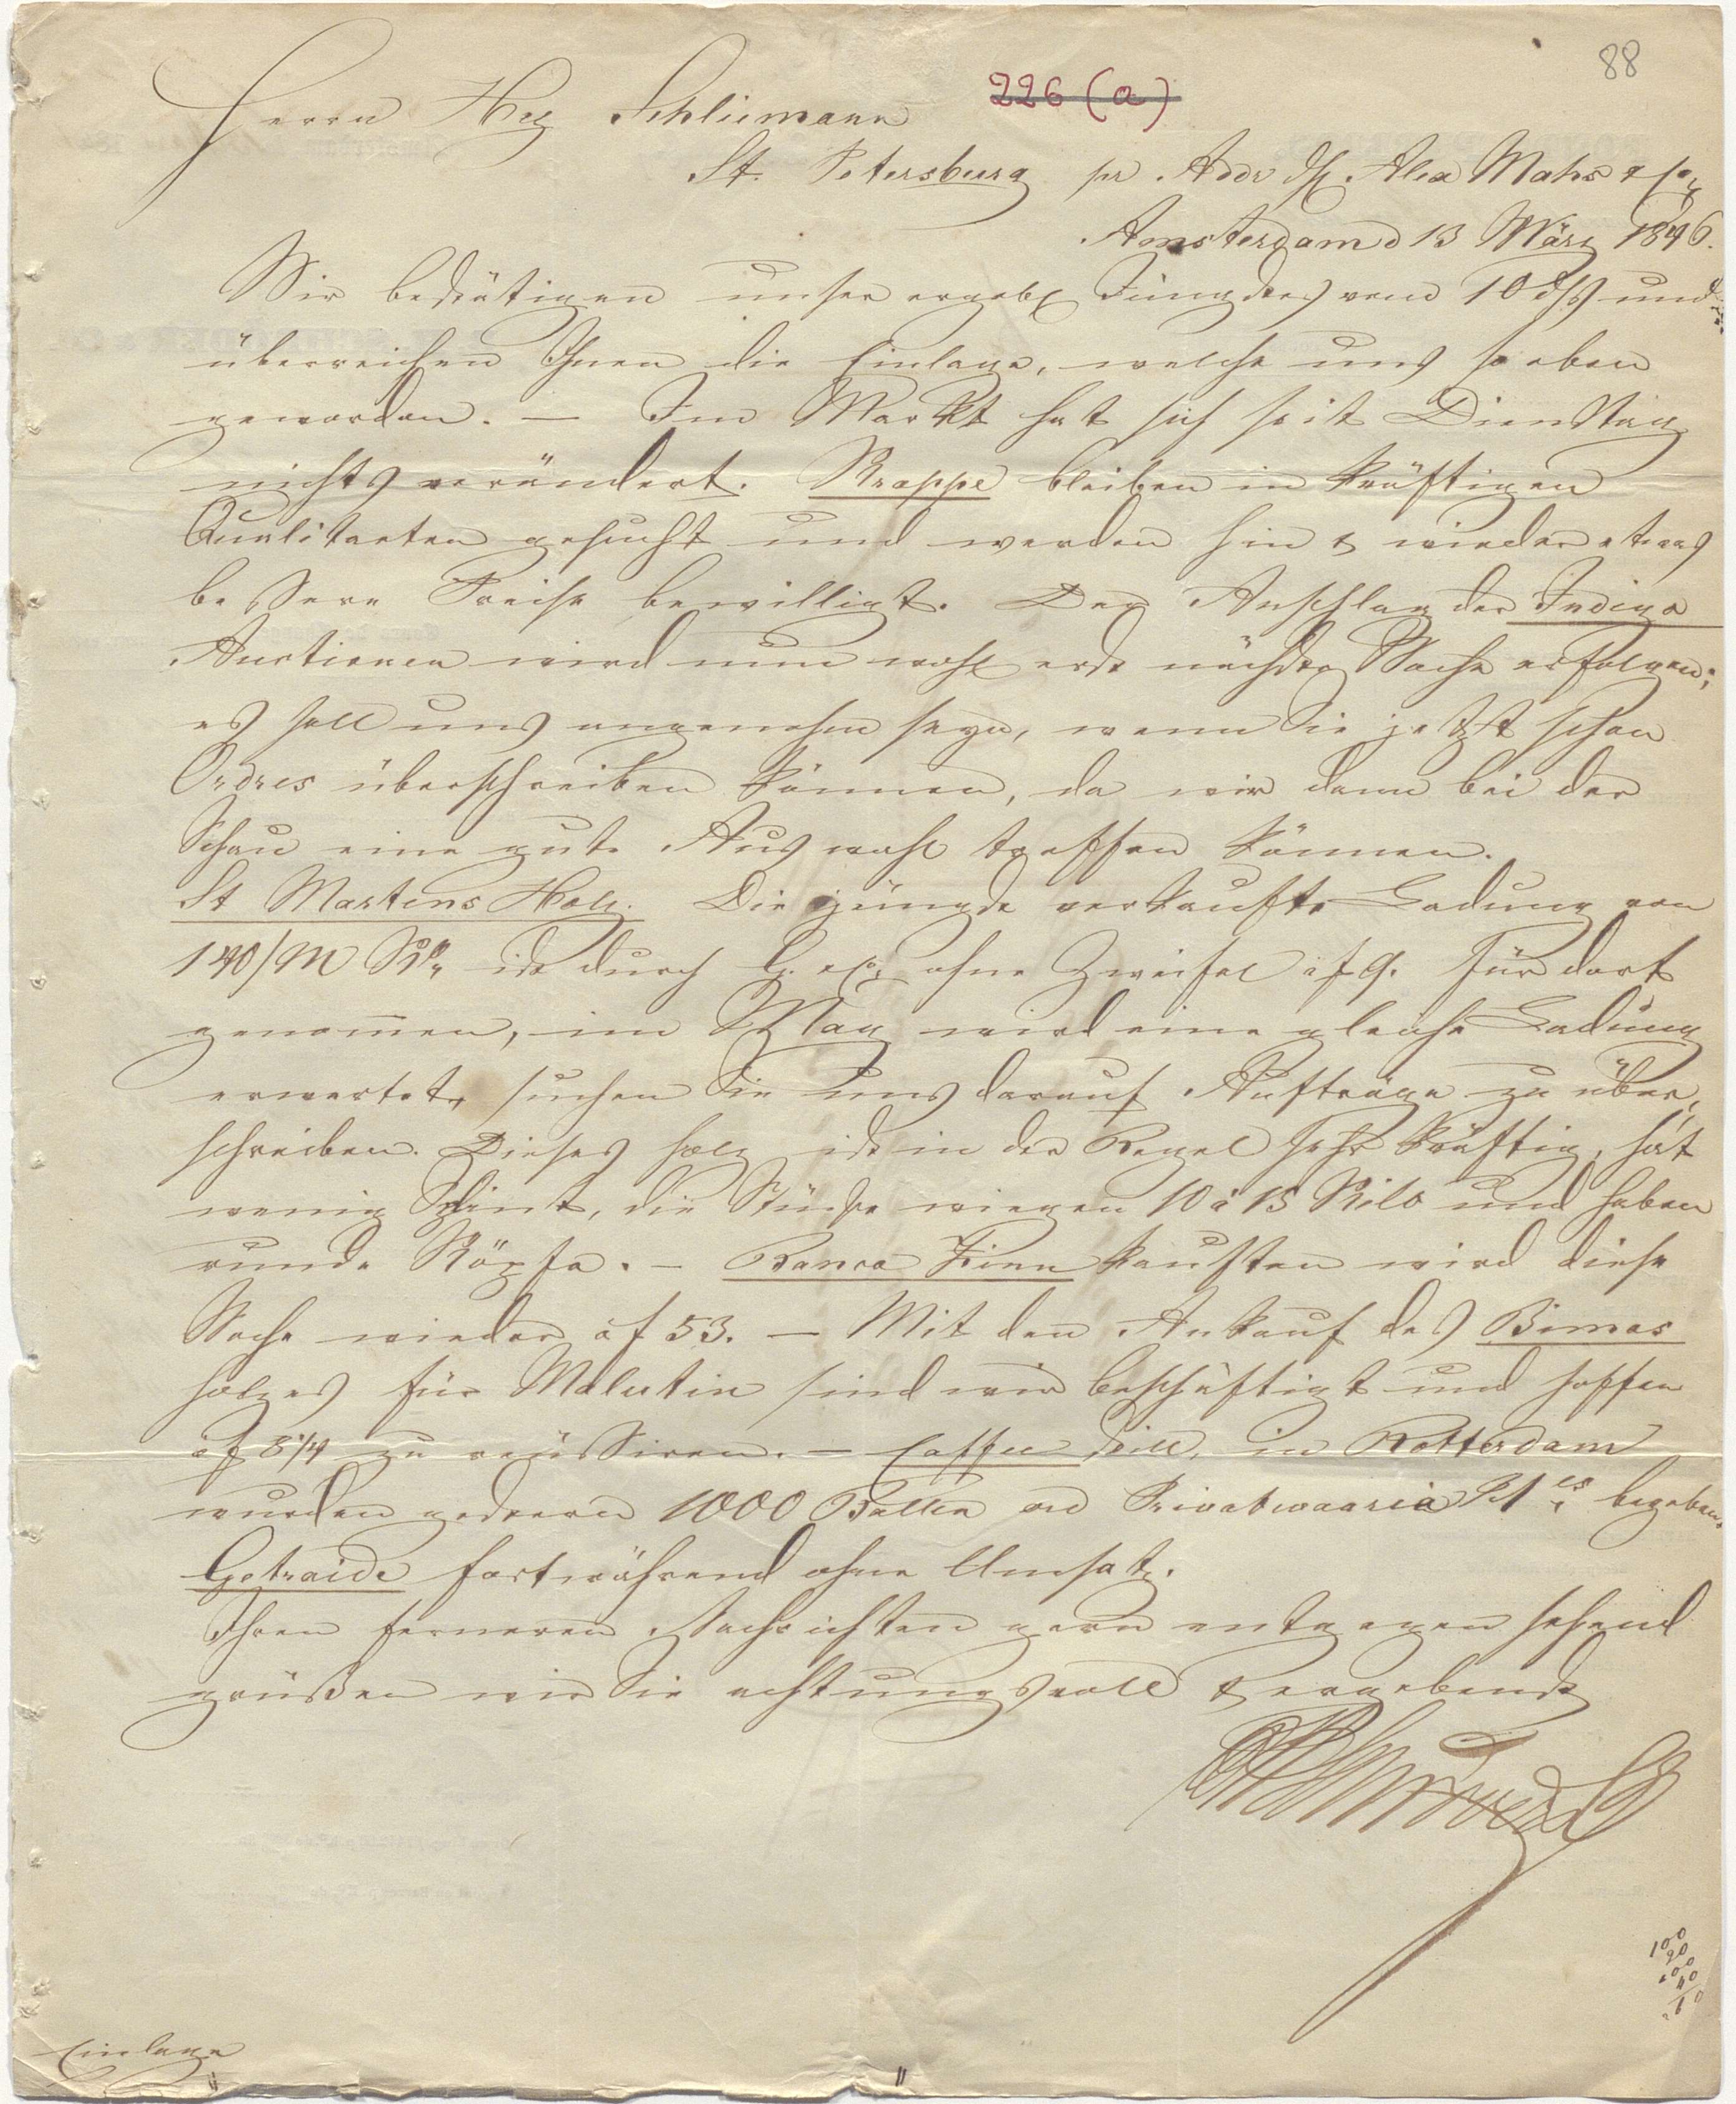 88
226 (a)
Herrn Hey Schliemann
St. Petersburg pr Addr Alex Mahs & Co
Amsterdam d 13 März 1846.
Wir bestätigen unser ergeb Jüngstes vom 10 dſs und
überreichen Ihnen die Einlage, welche uns so eben
geworden. — Im Markt hat sich seit Dienstag
nichts verändert. Krappe bleiben in kräftigen
Qualitaeten gesucht und werden hin & wieder etwas
bessere Preise bewilligt. Der Anschlag der Indigo
Auctionen wird nun wohl erst nächste Woche erfolgen;
es soll uns angenehm seyn, wenn Sie jetzt schon
Ordres überschreiben können, da wir dann bei der
Schau eine gute Auswahl treffen können.
St Martens Holz. Die jüngst verkaufte Ladung von
140/M ist durch ohne Zweifel f 9. für dort
genommen, im May wird eine gleiche Ladung
erwartet, suchen Sie uns darauf Aufträge zu über,
schreiben. Dieses Holz ist in der Regel sehr kräftig, hat
wenig Splint, die Stücke wiegen 10 à 15 Kilo und haben
runde Köpfe. — Banca Zinn kauften wir diese
Woche wieder à f 53. — Mit den Ankauf des Bimas
holzes für Malutin sind wir beschäftigt und hoffen
à f 8 1/4 zu reüssiren. — Caffee still, in Rotterdam
wurden gestern 1000 Ballen ord Privatwaare à begeben.
Getraide fortwährend ohne Umsatz.
Ihren ferneren Nachrichten gern entgegen sehend
grüßen wir Sie achtungsvoll & ergebenst
BHSchröder & Co
100
90
100
40
Einlage